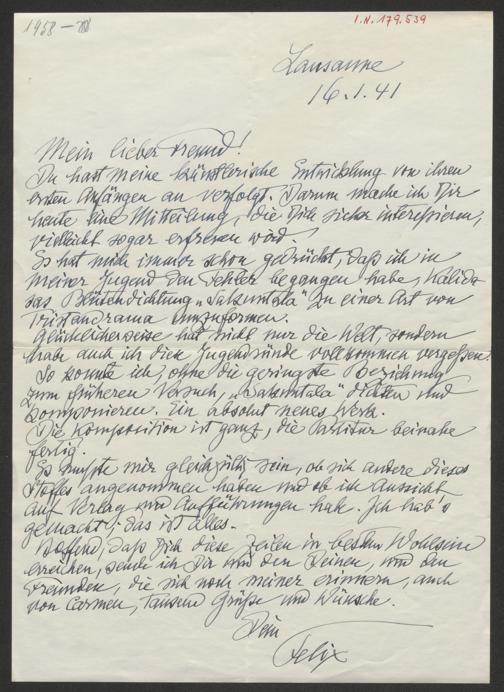 1958 –
I.N. 179.539
Lausanne
16.1.41
Mein lieber Freund!
Du hast meine künstlerische Entwicklung von ihren
ersten Anfängen an verfolgt. Darum mache ich Dir
heute eine Mitteilung, die Dich sicher interessieren,
vielleicht sogar erfreuen wird.
Es hat mich immer schon gedrückt, daß ich in
meiner Jugend den Fehler begangen habe, Kalida-
sas Blütendichtung „Sakuntala" zu einer Art von
Tristandrama umzuformen.
Glücklicherweise hat nicht nur die Welt, sondern
habe auch ich diese Jugendsünde vollkommen vergessen.
So konnte ich, ohne die geringste Beziehung
zum früheren Versuch, „Sakuntala" dichten und
komponieren. Ein absolut neues Werk.
Die Komposition ist ganz, die Partitur beinahe
fertig.
Es mußte mir gleichgültig sein, ob sich andere dieses
Stoffes angenommen haben und ob ich Aussicht
auf Verlag und Aufführungen habe. Ich hab's
gemacht; das ist alles.
Hoffend, daß Dich diese Zeilen in bestem Wohlsein
erreichen, sende ich Dir und den Deinen, und den
Freunden, die sich noch meiner erinnern, auch
von Carmen, tausend Grüße und Wünsche.
Dein
Felix